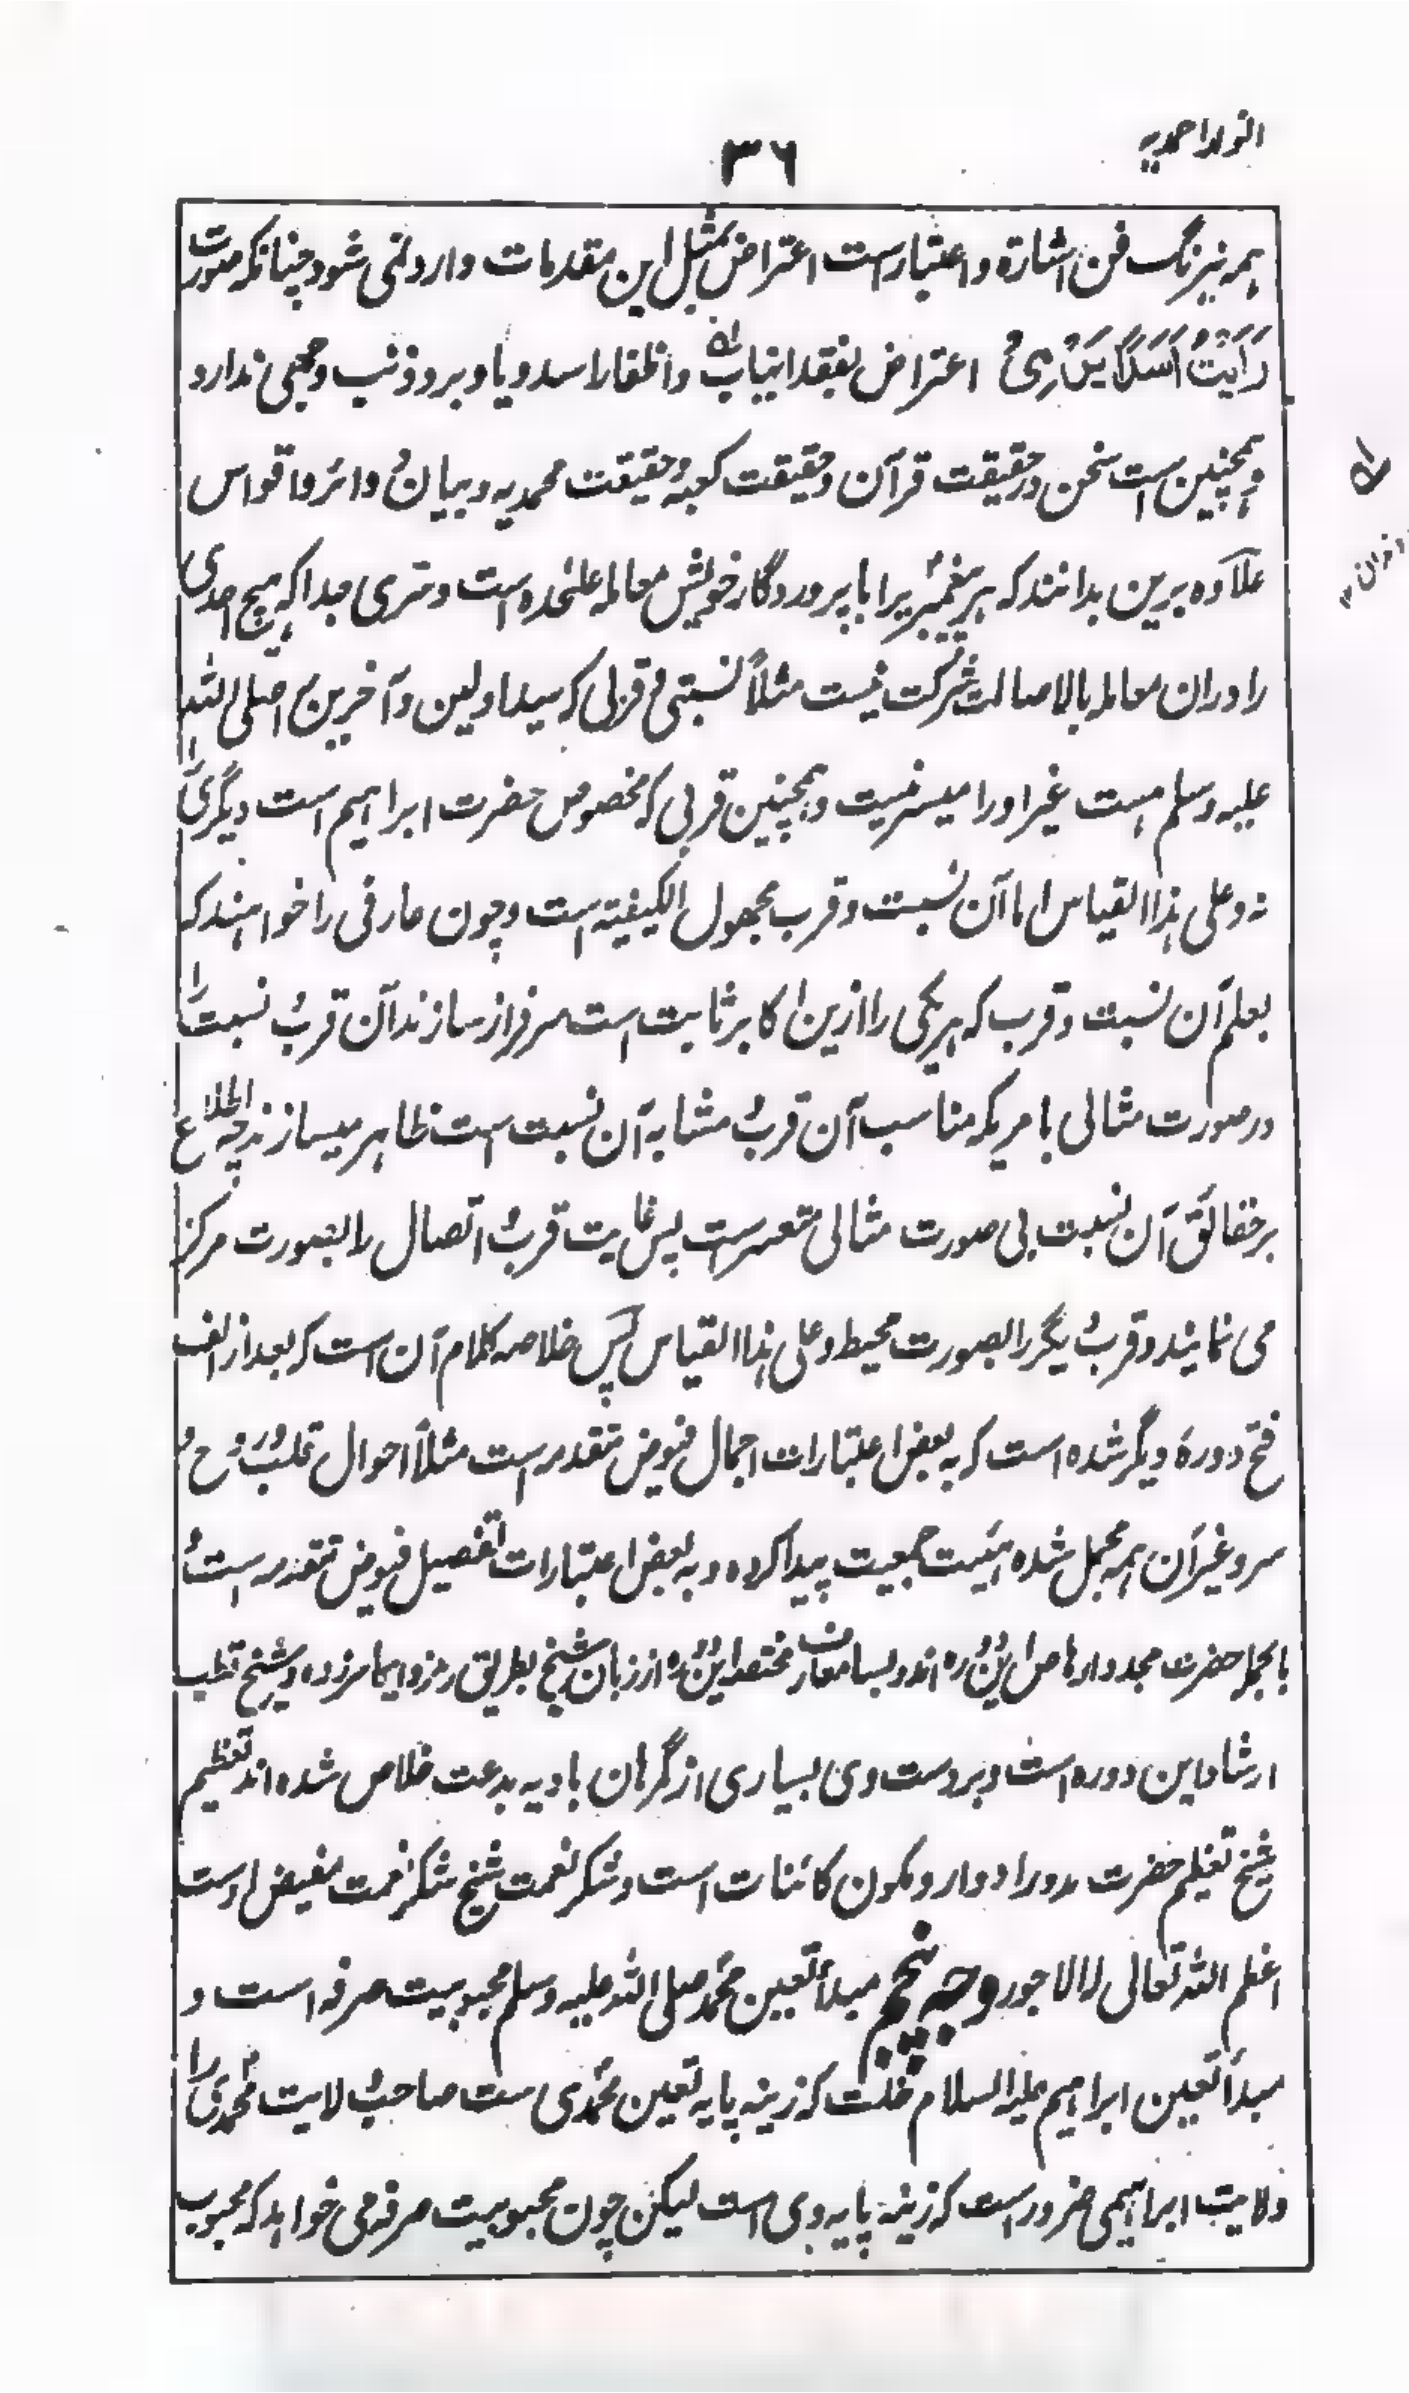 انوار احمدیه
۳۶
همه نیرنگ فن اشارة و اعتبار است اعتراض بمثل این مقدمات وارد نمی شود چنانکه صورت
رَاَیْتُ اَسَدًا یَرْمِیْ اعتراض بفقدانیاب و اظفار اسد و یا و برو ذنب وجهی ندارد
و همچنین است سخن در حقیقت قرآن و حقیقت کعبه و حقیقت محمدیه و بیان دوائر و اقواس
علاوه برین بدانند که هر پیغمبریرا با پروردگار خویش معامله علحده است و سّری جدا که هیچ احدی
را دران معامله بالاصالت شرکت نیست مثلاً نسبتی و قربی که سید اولین و آخرین را صلی الله
علیه وسلم هست غیر او را میسر نیست و همچنین قربی که مخصوص حضرت ابراهیم است دیگری را
نه و علی هذا القیاس اما آن نسبت و قرب مجهول الکیفیته است و چون عارفی را خواهند که
بعلم آن نسبت و قرب که هر یکی را ازین اکابر ثابت است سرفراز سازند آن قرب و نسبت را
در صورت مثالی با مریکه مناسب آن قرب و مشابه آن نسبت است ظاهر میسازند چه اطلاع
بر حقائق آن نسبت بی صورت مثالی متعسر است پس غایت قرب و اتصال را بصورت مرکز
می نمایند و قرب دیگر را بصورت محیط و علی هذا القیاس پس خلاصه کلام آن است که بعد از الف
فتح دورهٔ دیگر شده است که به بعض اعتبارات اجمال فیوض متقدمه است مثلاً احوال قلب و روح و
سر و غیر آن همه مجمل شده هیئت جمعیت پیدا کرده و به بعض اعتبارات تفصیل فیوض متقدمه است و
بالجمله حضرت مجدد ارهاص این دوره اند و بسا معارف مختصه این دوره از زبان شیخ بطریق رمز و ایما سرزده و شیخ قطب
ارشاد این دوره است و بر دست وی بسیاری از گمرهان بادیه بدعت خلاص شده اند تعظیم
شیخ تعظیم حضرت مدور ادوار و مکون کائنات است و شکر نعمت شیخ شکر نعمت مفیض اوست
اعظم الله تعالی له الاجور وجه پنجم مبدأ تعین محمد صلی الله علیه وسلم محبوبیت صرفه است و
مبدأ تعین ابراهیم علیه السلام خلت که زینه پایه تعین محمدی است صاحب ولایت محمدی را
ولایت ابراهیمی ضرور است که زینه پایه وی است لیکن چون محبوبیت صرفه می خواهد که محبوب